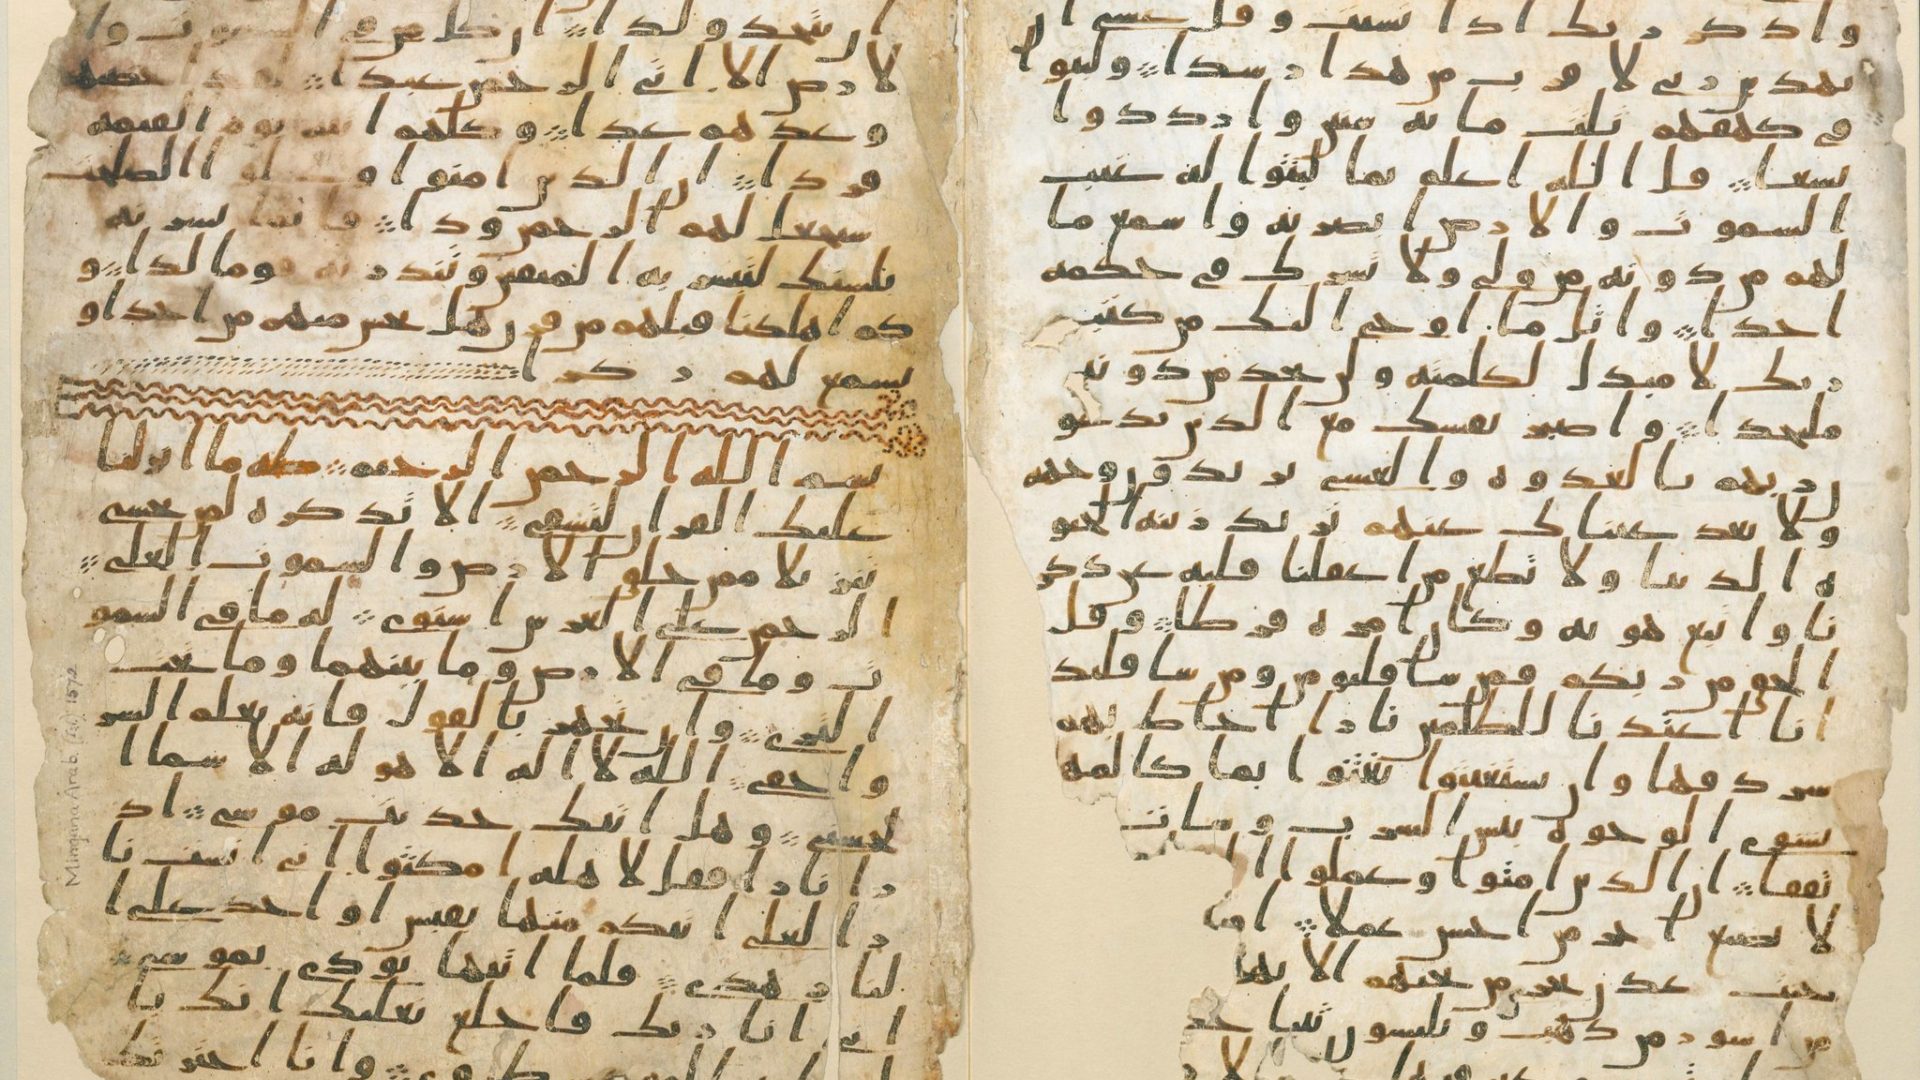 واذكر ربك اذا نسيت وقل عسى ان
يهدين ربي لاقرب من هذا رشدا ولبثوا
في كهفهم ثلث مائة سنين وازددوا
تسعا قل الله اعلم بما لبثوا له غيب
السموت والارض ابصر به واسمع ما
لهم من دونه من ولي ولا تشرك في حكمه
احدا واتل ما اوحي اليك من كتب
ربك لا مبدل لكلمته ولن تجد من دونه
ملتحدا واصبر نفسك مع الذين يدعو
ن ربهم بالغدوة والعشي يريدون وجهه
ولا تعد عيناك عنهم تريد زينة الحيو
ة الدنيا ولا تطع من اغفلنا قلبه عن ذكر
نا واتبع هويه وكان امره فرطا وقل
الحق من ربكم فمن شا فليومن ومن شا فليك
انا اعتدنا للظلمين نارا احاط بهم
سردقها وان يستغيثوا يغثوا بما كالمه
يشوي الوجوه بئس الشرب وسات
تفقا ان الذين امنوا وعملوا ا
لا نضيع اجر من احسن عملا
عدن تجري من تحتهم الانها
من اسور من ذهب ويلبسون ثيابا
ان يتخذ ولدا ان كل من في السموت وا
لارض الا اتي الرحمن عبدا لقد احصيهم
وعدهم عدا وكلهم اتيه يوم القيمة
فردا ان الذين امنوا وعملوا الصلحت
سيجعل لهم الرحمن ودا فانما يسرنه
بلسنك لتبشر به المتقين وتنذر به قوما لدا و
كم اهلكنا قبلهم من قرن هل تحس منهم من احد او
تسمع لهم ركزا
بسم الله الرحمن الرحيم طه ما انزلنا
عليك القران لتشقى الا تذكرة لمن يخشى
تنزيلا ممن خلق الارض والسموت العلى
الرحمن على العرش استوى له ما في السمو
ت وما في الارض وما بينهما وما تحت
الثرى وان تجهر بالقول فانه يعلم السر
واخفى الله لا اله الا هو له الاسما ا
لحسنى وهل اتيك حديث موسى اذ
را نارا فقل لاهله امكثوا اني انست نا
را لعلي اتيكم منها بقبس او اجد على ا
لنار هدى فلما اتيها نودي يموسى
اني انا ربك فاخلع نعليك انك با
وانا اخترتك
Mingana Arab. (Isl.) 1572